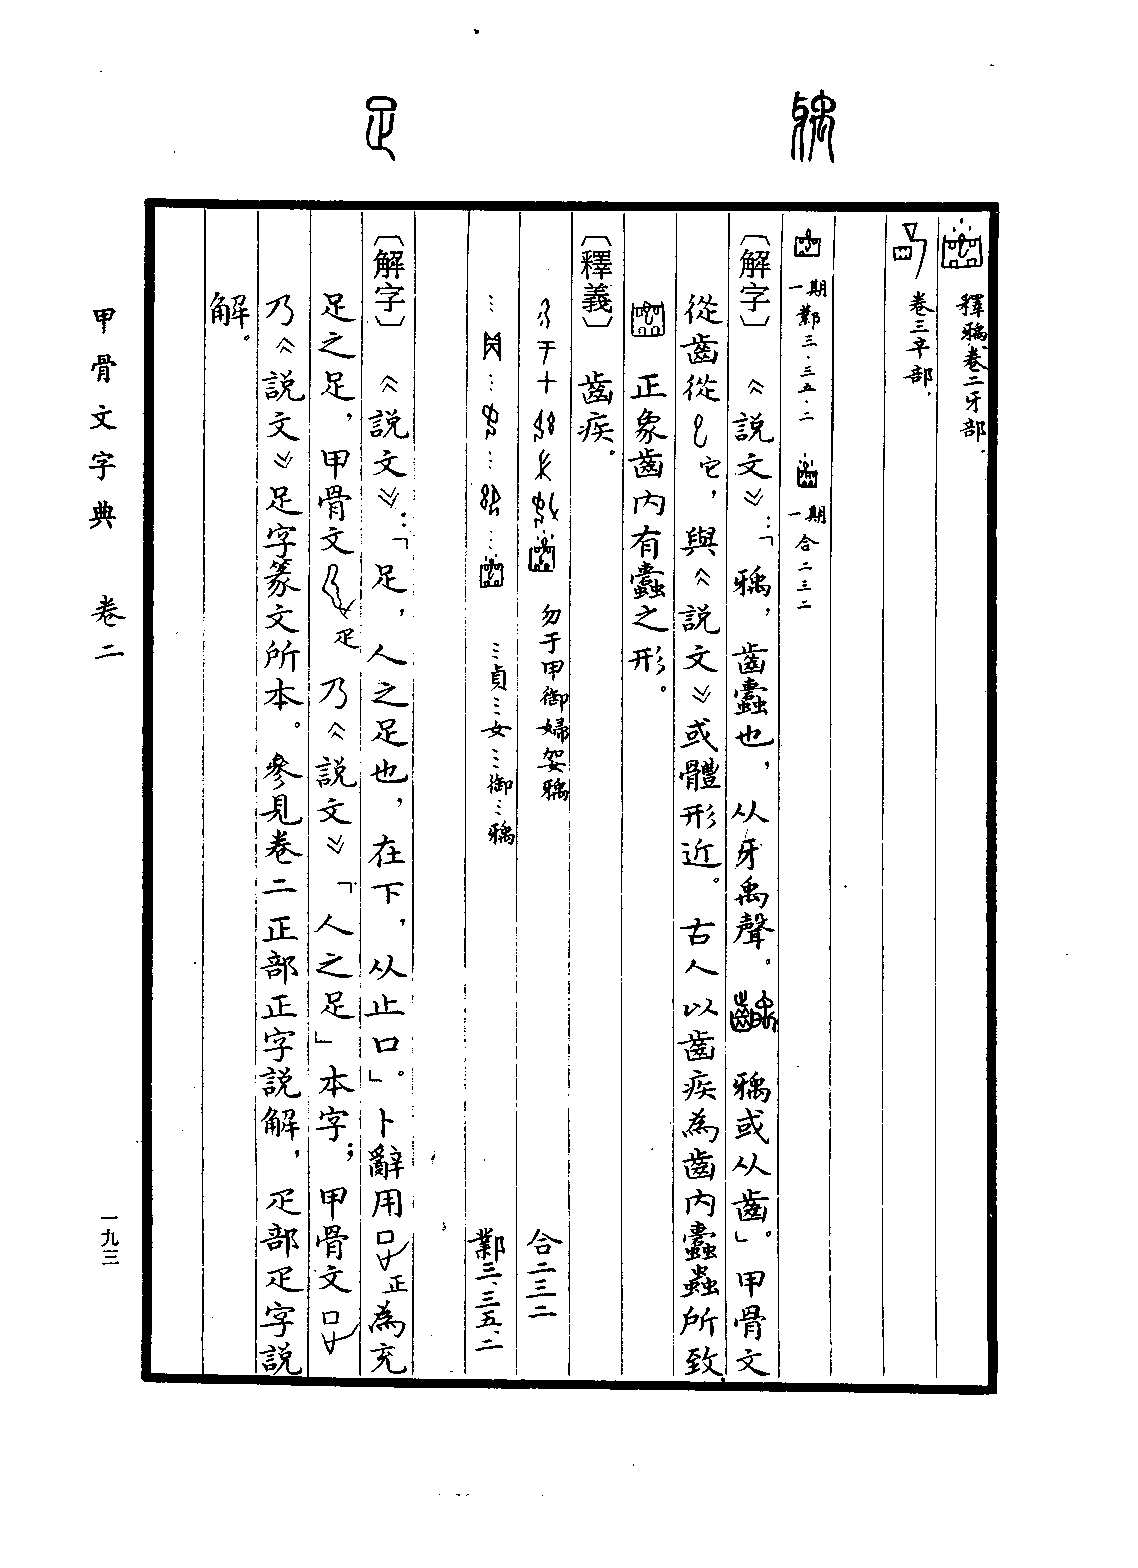 釋𤘐卷二牙部.
卷三䇂部.
一期 鄴三·三五·二 一期 合二三二
〔解字〕《說文》：「𤘐，齒蠹也，从牙禹聲。 𤘐或从齒」。甲骨文
從齒從 它，與《說文》或體形近。古人以齒疾為齒內蠹蟲所致
正象齒內有蠹之形。
〔釋義〕齒疾。
勿于甲御婦𡜊𤘐 合二三二
…貞…女…御…𤘐 鄴三、三五、二
〔解字〕《說文》：「足，人之足也，在下，从止口」。卜辭用 正 為充
足之足，甲骨文 疋 乃《說文》「人之足」本字；甲骨文
乃《說文》足字篆文所本。參見卷二正部正字說解，疋部疋字說
解。
甲骨文字典 卷二
一九三